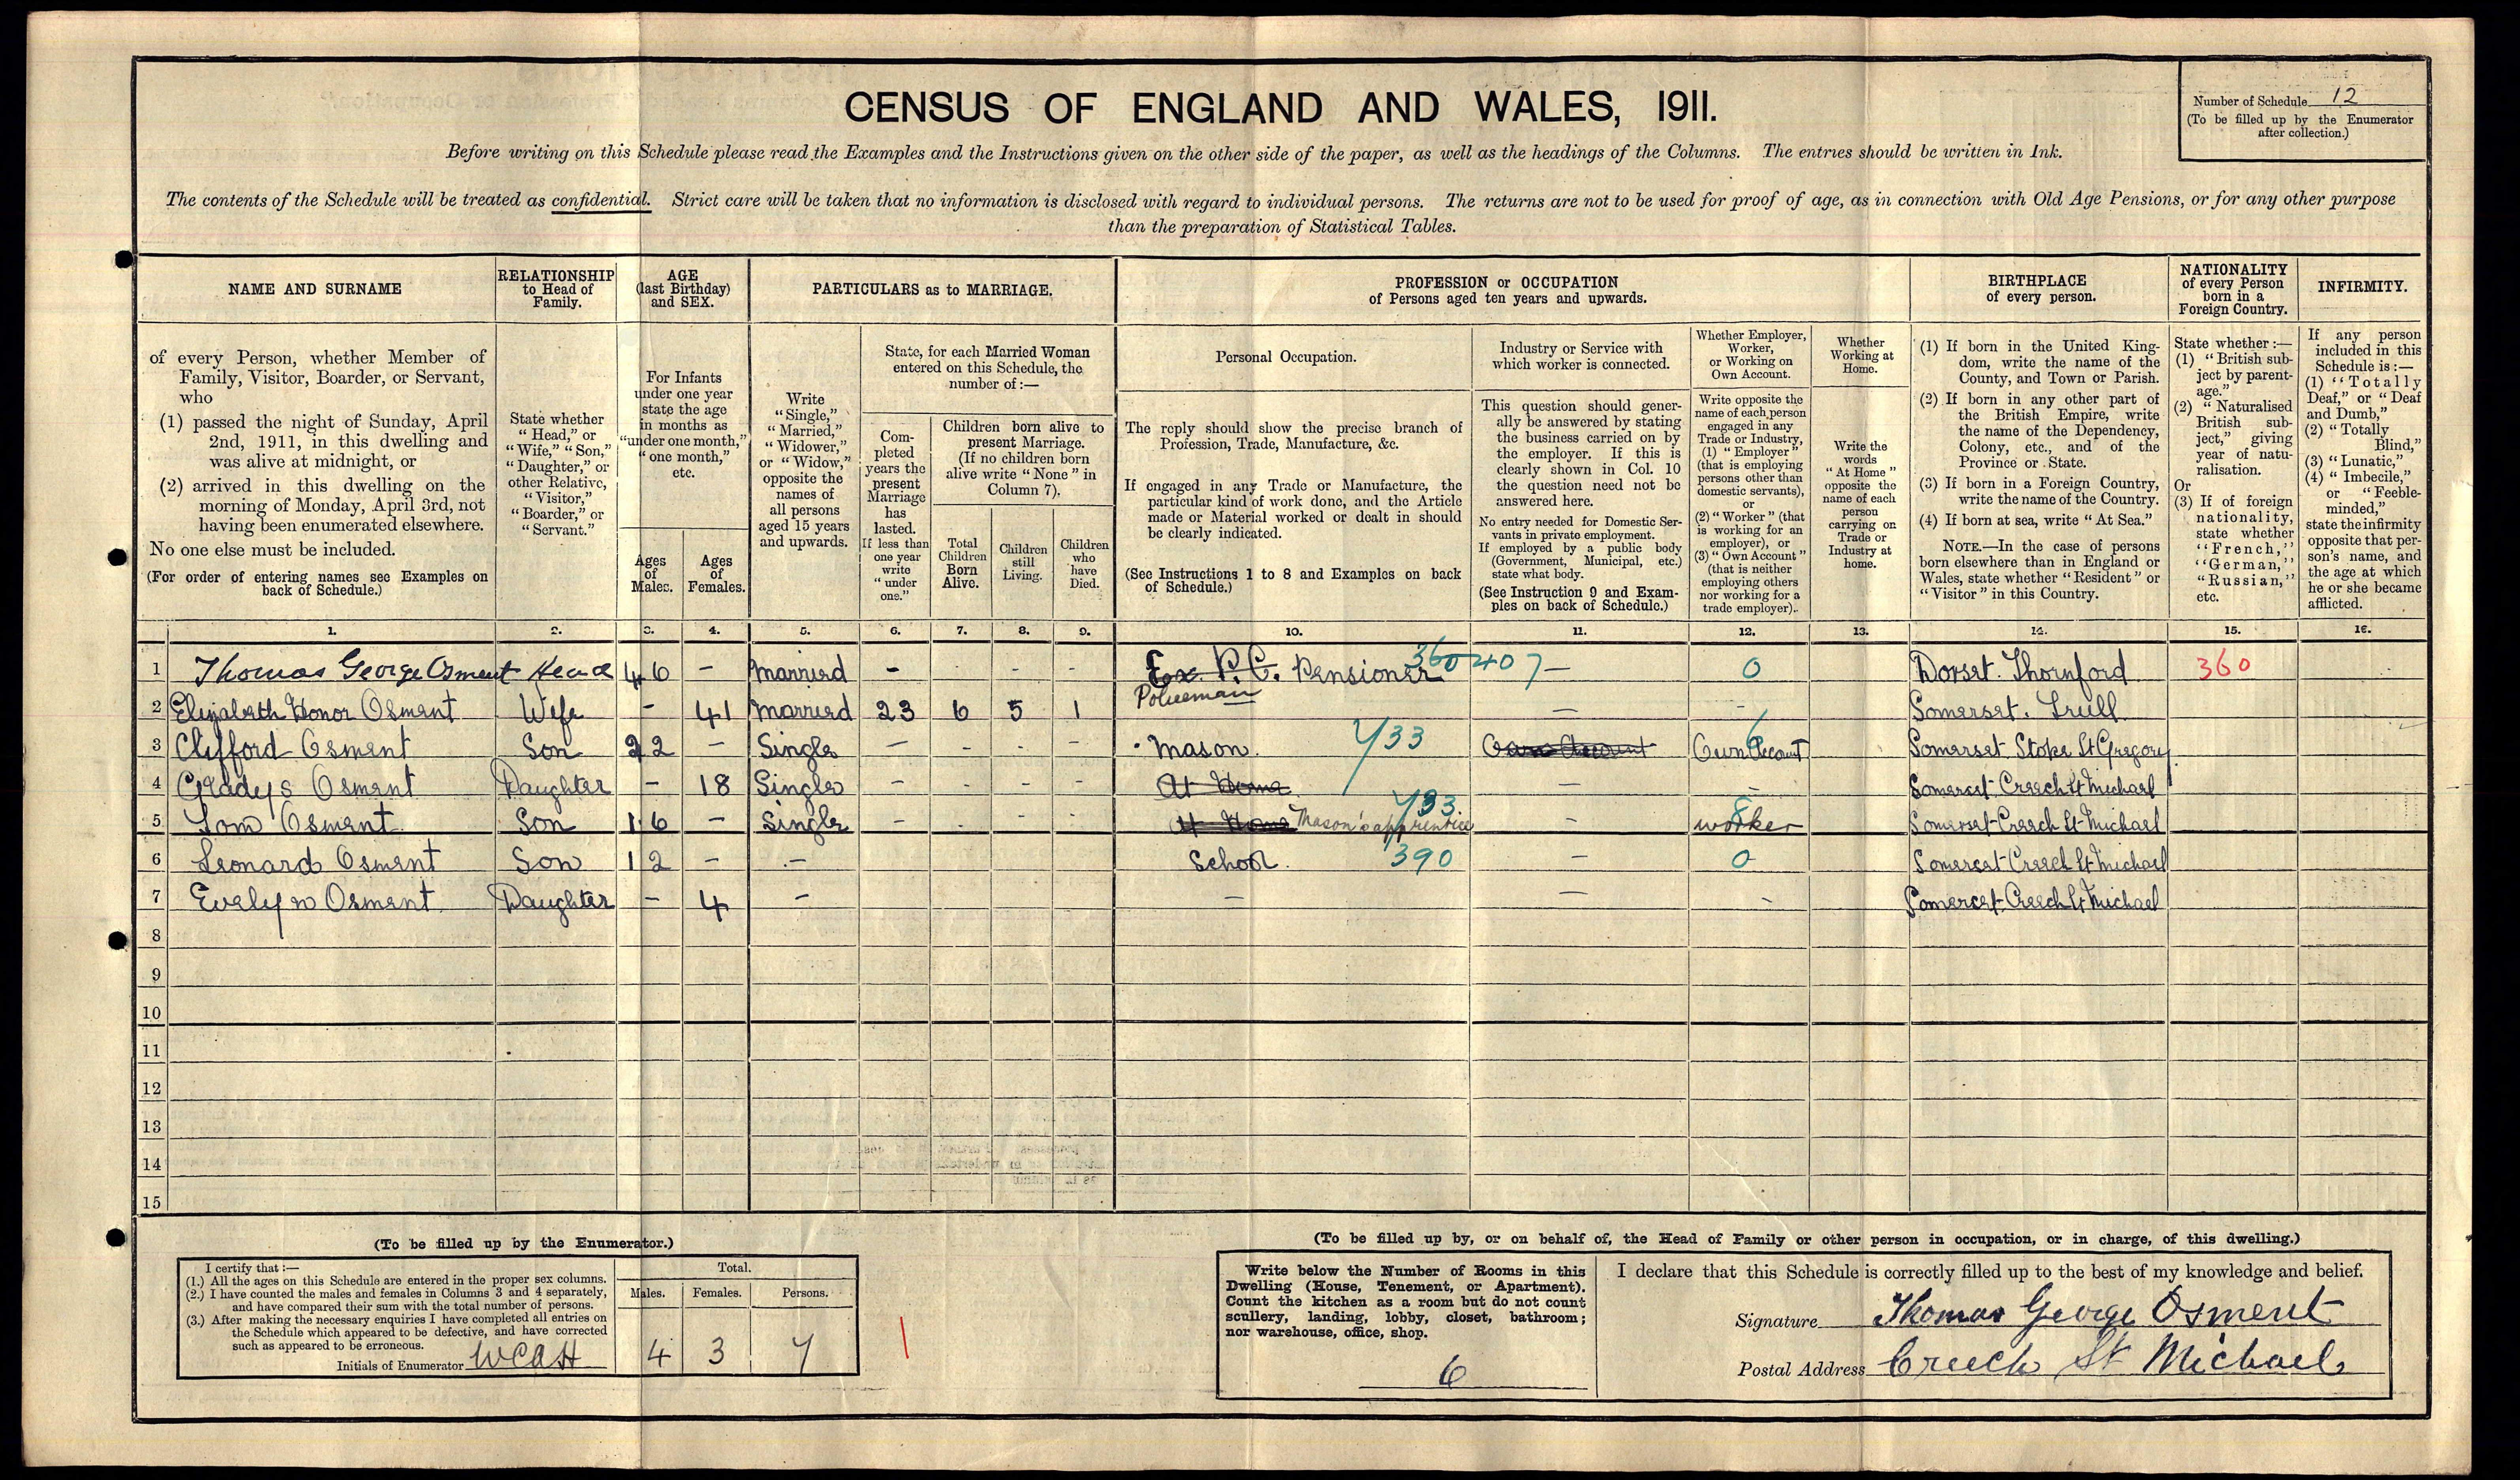 CENSUS OF ENGLAND AND WALES, 1911.
Number of Schedule 12
(To be filled up by the Enumerator
after collection.)
Before writing on this Schedule please read the Examples and the Instructions given on the other side of the paper, as well as the headings of the Columns. The entries should be written in Ink.
The contents of the Schedule will be treated as confidential. Strict care will be taken that no information is disclosed with regard to individual persons. The returns are not to be used for proof of age, as in connection with Old Age Pensions, or for any other purpose
than the preparation of Statistical Tables.
NAME AND SURNAME
of every Person, whether Member of
Family, Visitor, Boarder, or Servant,
who
(1) passed the night of Sunday, April
2nd, 1911, in this dwelling and
was alive at midnight, or
(2) arrived in this dwelling on the
morning of Monday, April 3rd, not
having been enumerated elsewhere.
No one else must be included.
(For order of entering names see Examples on
back of Schedule.)
RELATIONSHIP
to Head of
Family.
State whether
"Head," or
"Wife," "Son,"
"Daughter," or
other Relative,
"Visitor,"
"Boarder," or
"Servant."
AGE
(last Birthday)
and SEX.
For Infants
under one year
state the age
in months as
"under one month,"
"one month,"
etc.
Ages
of
Males.
Ages
of
Females.
PARTICULARS as to MARRIAGE.
Write
"Single,"
"Married,"
"Widower,"
or "Widow,"
opposite the
names of
all persons
aged 15 years
and upwards.
State, for each Married Woman
entered on this Schedule, the
number of:—
Com-
pleted
years the
present
Marriage
has
lasted.
If less than
one year
write
"under
one."
Children born alive to
present Marriage.
(If no children born
alive write "None" in
Column 7).
Total
Children
Born
Alive.
Children
still
Living.
Children
who
have
Died.
PROFESSION or OCCUPATION
of Persons aged ten years and upwards.
Personal Occupation.
The reply should show the precise branch of
Profession, Trade, Manufacture, &c.
If engaged in any Trade or Manufacture, the
particular kind of work done, and the Article
made or Material worked or dealt in should
be clearly indicated.
(See Instructions 1 to 8 and Examples on back
of Schedule.)
Industry or Service with
which worker is connected.
This question should gener-
ally be answered by stating
the business carried on by
the employer. If this is
clearly shown in Col. 10
the question need not be
answered here.
No entry needed for Domestic Ser-
vants in private employment.
If employed by a public body
(Government, Municipal, etc.)
state what body.
(See Instruction 9 and Exam-
ples on back of Schedule.)
Whether Employer,
Worker,
or Working on
Own Account.
Write opposite the
name of each person
engaged in any
Trade or Industry,
(1) "Employer"
(that is employing
persons other than
domestic servants),
or
(2) "Worker" (that
is working for an
employer), or
(3) "Own Account"
(that is neither
employing others
nor working for a
trade employer).
Whether
Working at
Home.
Write the
words
"At Home"
opposite the
name of each
person
carrying on
Trade or
Industry at
home.
BIRTHPLACE
of every person.
(1) If born in the United King-
dom, write the name of the
County, and Town or Parish.
(2) If born in any other part of
the British Empire, write
the name of the Dependency,
Colony, etc., and of the
Province or State.
(3) If born in a Foreign Country,
write the name of the Country.
(4) If born at sea, write "At Sea."
NOTE.—In the case of persons
born elsewhere than in England or
Wales, state whether "Resident" or
"Visitor" in this Country.
NATIONALITY
of every Person
born in a
Foreign Country.
State whether:—
(1) "British sub-
ject by parent-
age."
(2) "Naturalised
British sub-
ject," giving
year of natu-
ralisation.
Or
(3) If of foreign
nationality,
state whether
"French,"
"German,"
"Russian,"
etc.
INFIRMITY.
If any person
included in this
Schedule is:—
(1) "Totally
Deaf," or "Deaf
and Dumb,"
(2) "Totally
Blind,"
(3) "Lunatic,"
(4) "Imbecile,"
or "Feeble-
minded,"
state the infirmity
opposite that per-
son's name, and
the age at which
he or she became
afflicted.
1. 2. 3. 4. 5. 6. 7. 8. 9. 10. 11. 12. 13. 14. 15. 16.
1 Thomas George Osment Head 46 – Married – - - - Ex P.C. Pensioner 360 407 — 0 Dorset. Thornford 360
Policeman
2 Elizabeth Honor Osment Wife – 41 Married 23 6 5 1 — - Somerset. Trull
3 Clifford Osment Son 22 – Single – - - - Mason. 733 Own Account Own Account 6 Somerset Stoke St Gregory
4 Gladys Osment Daughter – 18 Single – - - - At Home — – Somerset Creech St Michael
5 Tom Osment Son 16 – Single – - - - At Home Mason's apprentice 733 – worker 8 Somerset Creech St Michael
6 Leonard Osment Son 12 – – School. 390 – 0 Somerset Creech St Michael
7 Evelyn Osment Daughter – 4 – – — - Somerset Creech St Michael
8
9
10
11
12
13
14
15
(To be filled up by the Enumerator.)
I certify that:—
(1.) All the ages on this Schedule are entered in the proper sex columns.
(2.) I have counted the males and females in Columns 3 and 4 separately,
and have compared their sum with the total number of persons.
(3.) After making the necessary enquiries I have completed all entries on
the Schedule which appeared to be defective, and have corrected
such as appeared to be erroneous.
Initials of Enumerator
Total.
Males. Females. Persons.
4 3 7
(To be filled up by, or on behalf of, the Head of Family or other person in occupation, or in charge, of this dwelling.)
Write below the Number of Rooms in this
Dwelling (House, Tenement, or Apartment).
Count the kitchen as a room but do not count
scullery, landing, lobby, closet, bathroom;
nor warehouse, office, shop.
6
I declare that this Schedule is correctly filled up to the best of my knowledge and belief.
Signature Thomas George Osment
Postal Address Creech St Michael